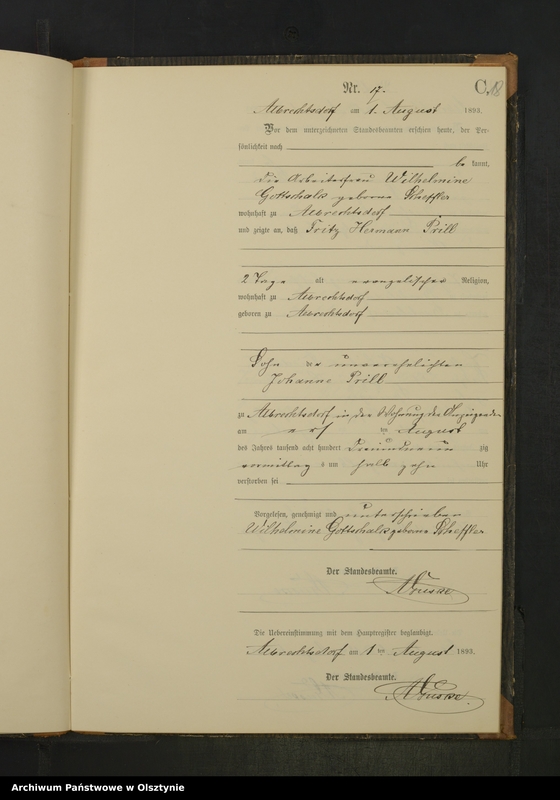 C. 18
Nr. 17.
Albrechtsdorf am 1. August 1893.
Vor dem unterzeichneten Standesbeamten erschien heute, der Per-
sönlichkeit nach
be kannt,
die Arbeiterfrau Wilhelmine
Gottschalk geborne Scheffler
wohnhaft zu Albrechtsdorf
und zeigte an, daß Fritz Hermann Prill
2 Tage alt evangelischer Religion,
wohnhaft zu Albrechtsdorf
geboren zu Albrechtsdorf
Sohn der unverehelichten
Johanne Prill
zu Albrechtsdorf in der Wohnung der Anzeigenden
am ersten August
des Jahres tausend acht hundert dreiundneun zig
vormittag s um halb zehn Uhr
verstorben sei
Vorgelesen, genehmigt und unterschrieben
Wilhelmine Gottschalk geborne Scheffler
Der Standesbeamte.
Die Uebereinstimmung mit dem Hauptregister beglaubigt.
Albrechtsdorf am 1 ten August 1893.
Der Standesbeamte.
Archiwum Państwowe w Olsztynie